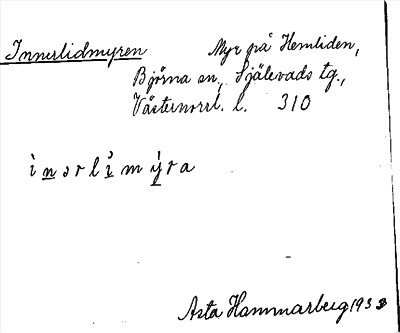 Innerlidmyren Myr på Hemliden,
Björna sn, Själevads tg.,
Västernorrl. l. 310
ìnərlı̊mýra
Asta Hammarberg 1933